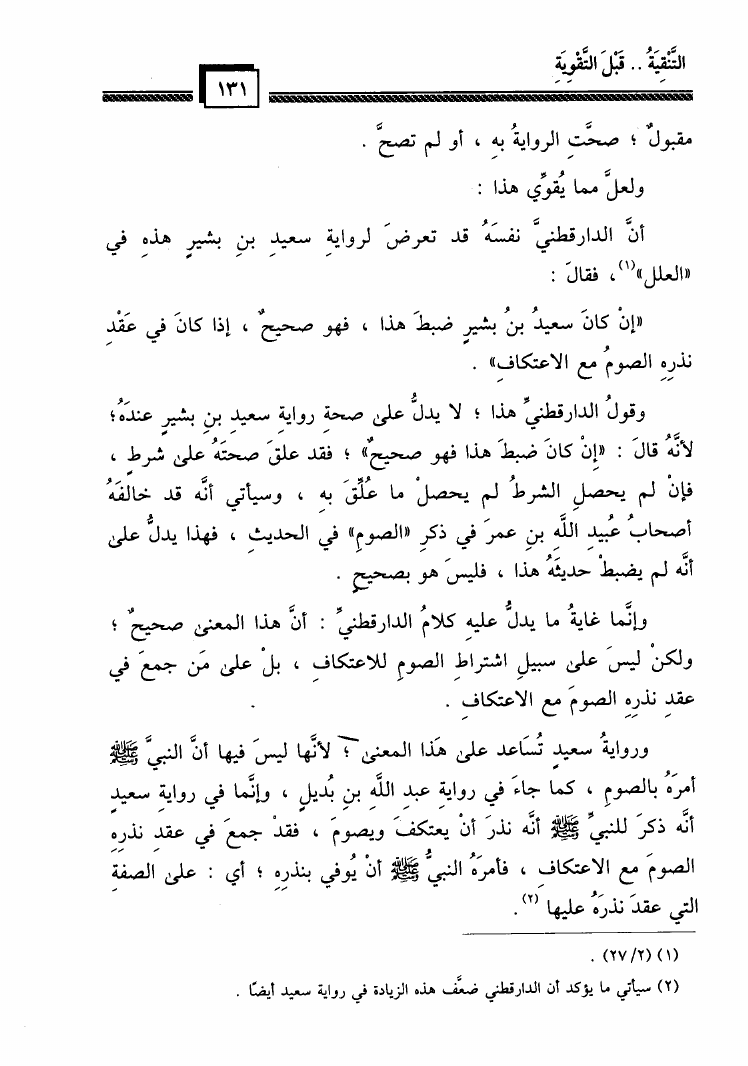 التَّنْقِيَةُ .. قَبْلَ التَّقْوِيَةِ
١٣١
مقبولٌ ؛ صحَّتِ الروايةُ بهِ ، أو لم تصحَّ .
ولعلَّ مما يُقوِّي هذا :
أنَّ الدارقطنيَّ نفسَهُ قد تعرضَ لروايةِ سعيدِ بنِ بشيرٍ هذهِ في
«العلل»(١)، فقالَ :
«إنْ كانَ سعيدُ بنُ بشيرٍ ضبطَ هذا ، فهو صحيحٌ ، إذا كانَ في عَقْدِ
نذرِهِ الصومُ مع الاعتكافِ» .
وقولُ الدارقطنيِّ هذا ؛ لا يدلُّ على صحةِ روايةِ سعيدِ بنِ بشيرٍ عندَهُ؛
لأنَّهُ قالَ : «إنْ كانَ ضبطَ هذا فهو صحيحٌ» ؛ فقد علقَ صحتَهُ على شرطٍ ،
فإنْ لم يحصلِ الشرطُ لم يحصلْ ما عُلِّقَ بهِ ، وسيأتي أنَّه قد خالفَهُ
أصحابُ عُبيدِ اللَّهِ بنِ عمرَ في ذكرِ «الصومِ» في الحديثِ ، فهذا يدلُّ على
أنَّه لم يضبطْ حديثَهُ هذا ، فليسَ هو بصحيحٍ .
وإنَّما غايةُ ما يدلُّ عليهِ كلامُ الدارقطنيِّ : أنَّ هذا المعنى صحيحٌ ؛
ولكنْ ليسَ على سبيلِ اشتراطِ الصومِ للاعتكافِ ، بلْ على مَن جمعَ في
عقدِ نذرِهِ الصومَ مع الاعتكافِ .
وروايةُ سعيدٍ تُساعد على هَذا المعنى ؛ لأنَّها ليسَ فيها أنَّ النبيَّ ﷺ
أمرَهُ بالصومِ ، كما جاءَ في روايةِ عبدِ اللَّهِ بنِ بُديلٍ ، وإنَّما في روايةِ سعيدٍ
أنَّه ذكرَ للنبيِّ ﷺ أنَّه نذرَ أنْ يعتكفَ ويصومَ ، فقدْ جمعَ في عقدِ نذرِهِ
الصومَ مع الاعتكافِ ، فأمرَهُ النبيُّ ﷺ أنْ يُوفي بنذرِهِ ؛ أي : على الصفةِ
التي عقدَ نذرَهُ عليها (٢).
(١) (٢/ ٢٧) .
(٢) سيأتي ما يؤكد أن الدارقطني ضعَّف هذه الزيادة في رواية سعيد أيضًا .